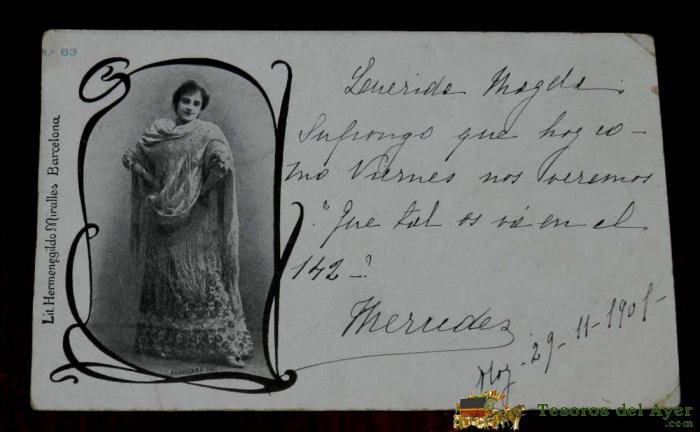 N.º 63
Lit. Hermenegildo Miralles Barcelona
Querida Magda:
Supongo que hoy co-
mo Viernes nos veremos.
¿Que tal os vá en el
142-?
Mercedes
Hoy - 29-11-1901-
AUDOUARD
Tesoros del Ayer
.com